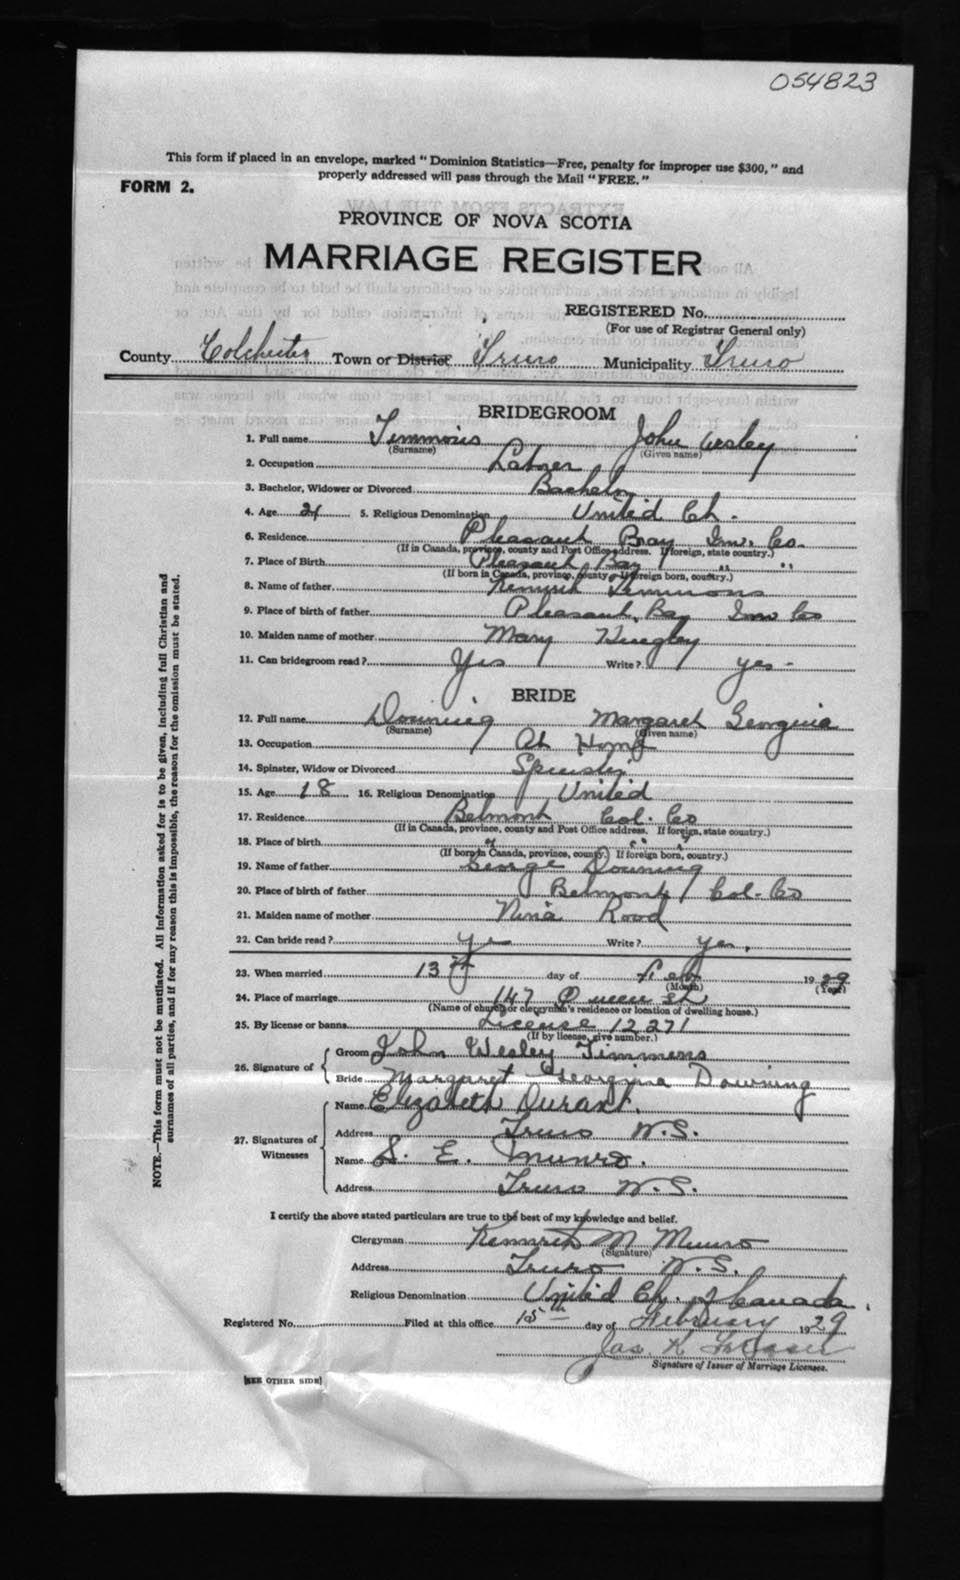 054823
This form if placed in an envelope, marked "Dominion Statistics—Free, penalty for improper use $300," and
properly addressed will pass through the Mail "FREE."
FORM 2.
PROVINCE OF NOVA SCOTIA
MARRIAGE REGISTER
REGISTERED No.
(For use of Registrar General only)
County Colchester Town or District Truro Municipality Truro
BRIDEGROOM
1. Full name Timmons John Wesley
(Surname) (Given name)
2. Occupation Laborer
3. Bachelor, Widower or Divorced Bachelor
4. Age 21 5. Religious Denomination United Ch.
6. Residence Pleasant Bay Inv. Co.
(If in Canada, province, county and Post Office address. If foreign, state country.)
7. Place of Birth Pleasant Bay " "
(If born in Canada, province, county. If foreign born, country.)
8. Name of father Timmons
9. Place of birth of father Pleasant Bay Inv Co
10. Maiden name of mother Mary
11. Can bridegroom read? Yes Write? yes-
BRIDE
12. Full name Downing Margaret Georgina
(Surname) (Given name)
13. Occupation At Home
14. Spinster, Widow or Divorced Spinster
15. Age 18 16. Religious Denomination United
17. Residence Belmont Col. Co
(If in Canada, province, county and Post Office address. If foreign, state country.)
18. Place of birth " " "
(If born in Canada, province, county. If foreign born, country.)
19. Name of father George Downing
20. Place of birth of father Belmont Col. Co
21. Maiden name of mother Nina Rood
22. Can bride read? Yes Write? yes.
23. When married 13th day of Feb 1929
(Month) (Year)
24. Place of marriage 147 Queen St
(Name of church or clergyman's residence or location of dwelling house.)
25. By license or banns License 12271
(If by license, give number.)
26. Signature of Groom John Wesley Timmons
Bride Margaret Georgina Downing
27. Signatures of Witnesses Name Elizabeth Durant.
Address Truro N.S.
Name S. E. Munro.
Address Truro N.S.
I certify the above stated particulars are true to the best of my knowledge and belief.
Clergyman Kenneth M Munro
(Signature)
Address Truro N.S.
Religious Denomination United Ch. of Canada.
Registered No. Filed at this office 15th day of February 1929
Jas. K
Signature of Issuer of Marriage Licenses.
[SEE OTHER SIDE]
NOTE.—This form must not be mutilated. All information asked for is to be given, including full Christian and
surnames of all parties, and if for any reason this is impossible, the reason for the omission must be stated.